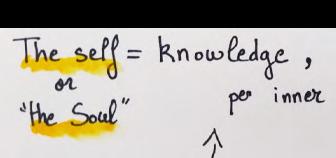 The self = knowledge,
or per inner
"the Soul"